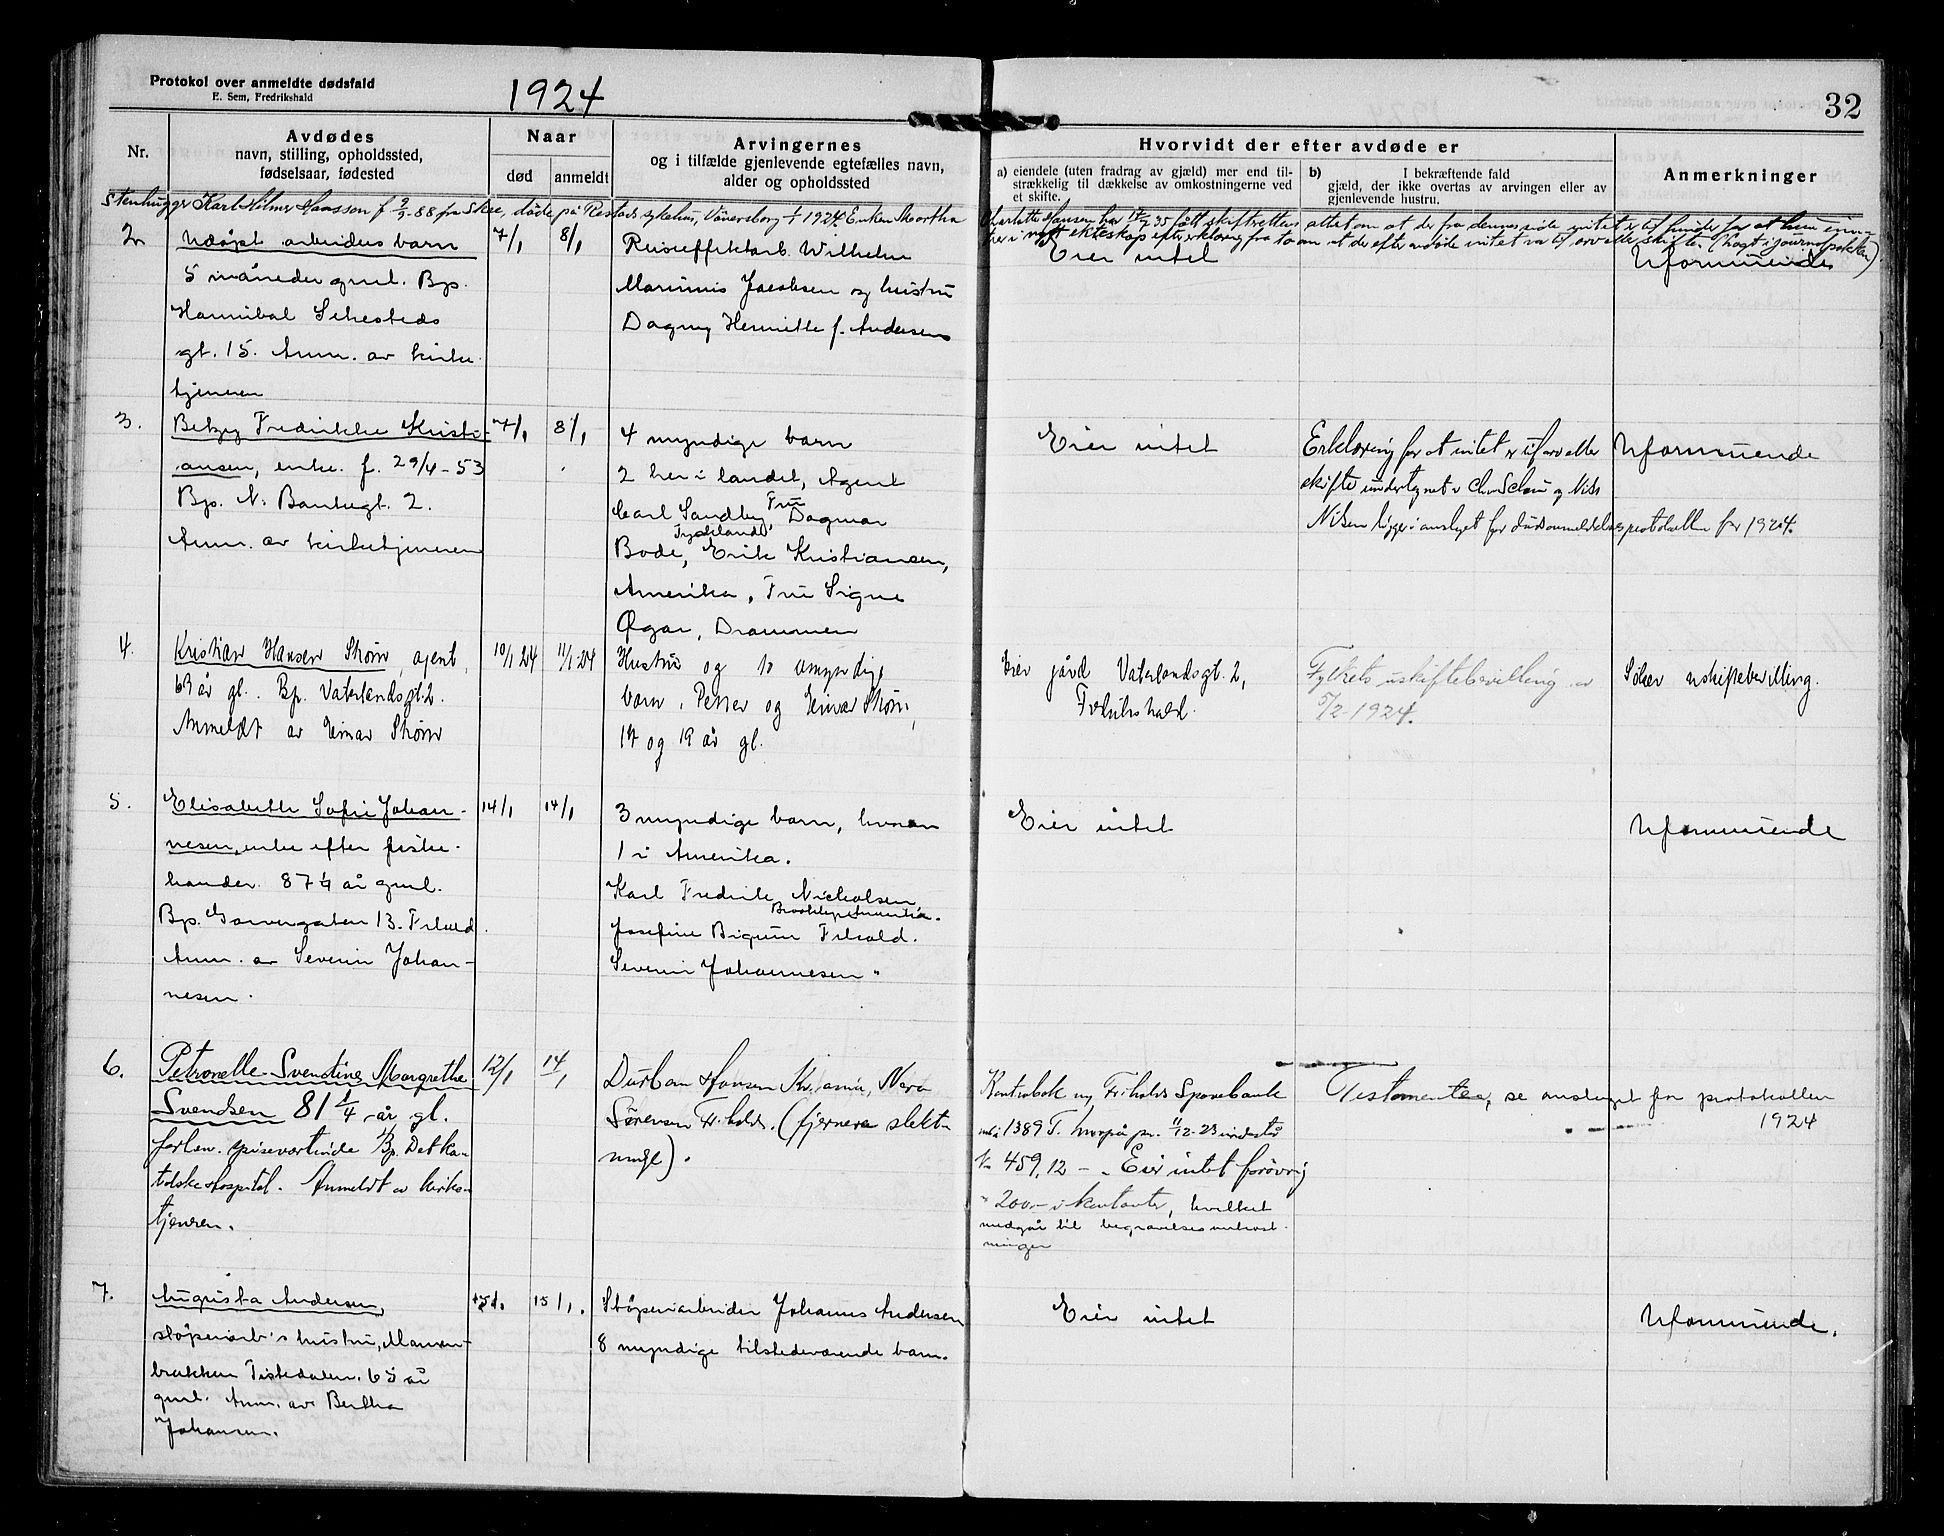 Protokol over anmeldte dødsfald
E. Sem, Fredrikshald
1924
32
Nr.
Avdødes
navn, stilling, opholdssted,
fødselsaar, fødested
Naar
død
anmeldt
Arvingernes
og i tilfælde gjenlevende egtefælles navn,
alder og opholdssted
Hvorvidt der efter avdøde er
a) eiendele (uten fradrag av gjæld) mer end til-
strækkelig til dækkelse av omkostningerne ved
et skifte.
b) I bekræftende fald
gjæld, der ikke overtas av arvingen eller av
gjenlevende hustru.
Anmerkninger
Stenhugger Karl Hilmer Hansson f 9/9-88 fra Skee, døde på Restads sykehus, Vänersborg † 1924. Enken Martha
Charlotte Hansen har 35 fått skifterettens attest om at der fra dennes side intet er til hinder for at hun inn-
trer i nytt ekteskap efter erklæring fra to om at der efter avdøde intet var til arv eller skifte. (lagt i journalpakken)
2.
Udøpt arbeiders barn
5 måneder gml. Bp.
Hannibal Sehesteds
gt. 15. Anm. av kirke-
tjeneren
7/1
8/1
Reiseeffektarb. Wilhelm
Marinius Jacobsen og hustru
Dagny Henriette f. Andersen
Eier intet
Uformuende
3.
Betzy Fredrikke Kristi-
ansen, enke. f. 29/4-53
Bp. N. Bankegt. 2.
Anm. av kirketjeneren
7/1
8/1
4 myndige barn
2 her i landet, Agent
Carl Sandby, Fru Dagmar
Bode, Tyskland Erik Kristiansen,
Amerika, Fru Signe
Øgar, Drammen
Eier intet
Erklæring for at intet er til arv eller
skifte undertegnet av Chr Schou og Nils
Nilsen ligger i omslaget for dødsanmeldelsesprotokollen for 1924.
Uformuende
4.
Kristian Hansen Strøm, agent,
69 år gl. Bp. Vaterlandsgt. 2.
Anmeldt av Einar Strøm
10/1 24
11/1-24
Hustru og to umyndige
barn, Petter og Einar Strøm,
17 og 19 år gl.
Eier gård Vaterlandsgt. 2,
Fredrikshald.
Fylkets uskiftebevilling av
5/2-1924.
Søker uskiftebevilling.
5.
Elisabeth Sofie Johan-
nesen, enke efter fiske-
hander. 87 1/4 år gml.
Bp. Garvergaten 13. Frhald.
Anm. av Severin Johan-
nesen.
14/1
14/1
3 myndige barn, hvorav
1 i Amerika.
Karl Fredrik Nicholsen
Brooklyn Amerika.
Josefine Bigum Frhald.
Severin Johannesen "
Eier intet
Uformuende
6.
Petronelle Svendine Margrethe
Svendsen 81 1/4 år gl.
forhen. spisevertinde Bp. Det ka-
tolske Hospital. Anmeldt av kirke-
tjeneren.
12/1
14/1
Durban Hansen Kr.ania, Nera
Sørensen Fr.hald. (fjernere slekt-
ninge).
Kontrabok og Fr.halds Sparebank
1389 T. hvorpå pr. 11/12-23 indestår
Kr 459,12 - . Eier intet forøvrig
" 200.- i kontanter, hvilket
medgår til begravelsesomkost-
ninger
Testamente, se omslaget for protokollen
1924
7.
Augusta Andersen,
støperiarb's hustru, Manen-
brakken Tistedalen. 65 år
gml. Anm. av Bertha
Johansen.
15/1.
15/1.
Støperiarbeider Johannes Andersen
8 myndige tilstedeværende barn.
Eier intet
Uformuende.